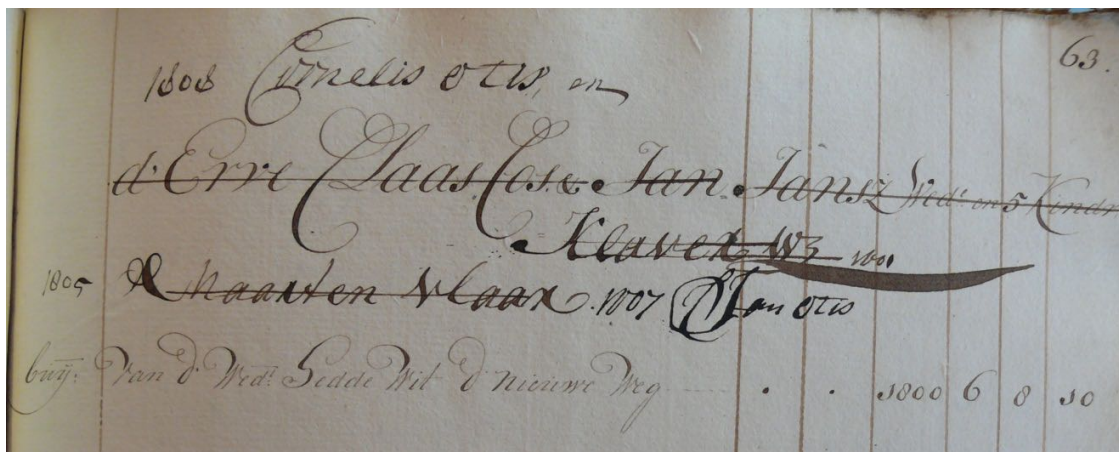 63.
1808 Cornelis Otis, en
d'Erve Claas Cos. Jan Jansz Wedr en 5 Kindr
Klaver
1805 Maarten Vlaar 1807 Jan Otis
buij: van d' Wedr. Sedde Wit d' nieuwe Weg . . 1800 6 8 10